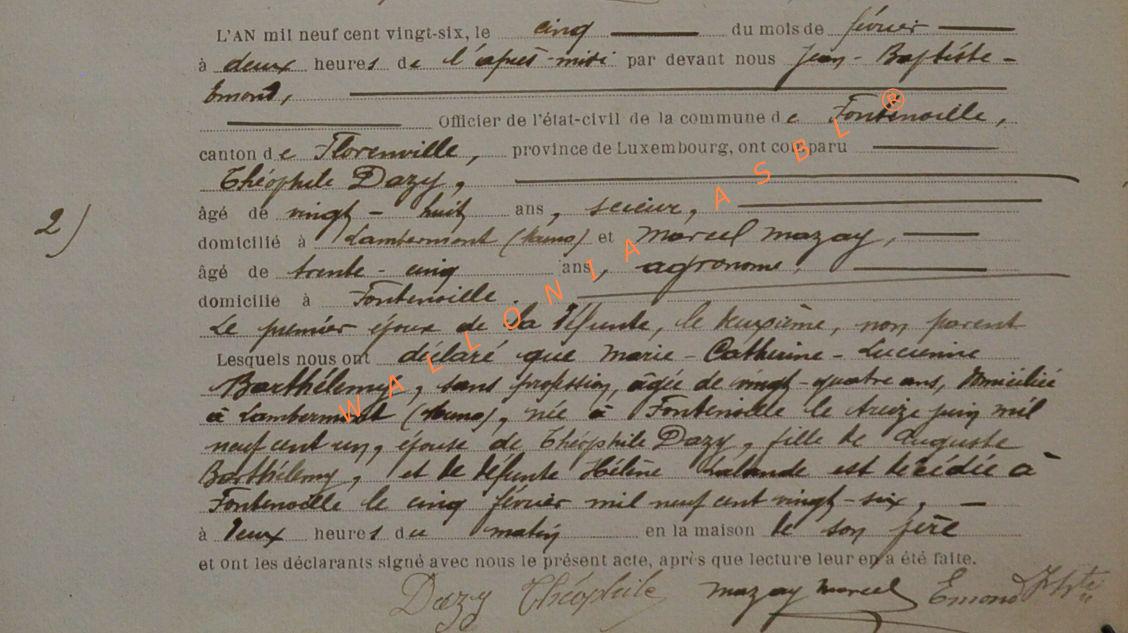 L'AN mil neuf cent vingt-six, le cinq du mois de février
à deux heures de l'après-midi par devant nous Jean-Baptiste-
Emond,
Officier de l'état-civil de la commune de Fontenoille,
canton de Florenville, province de Luxembourg, ont comparu
Théophile Dazy,
âgé de vingt-huit ans, scieur,
2)
domicilié à Lambermont (Muno) et Marcel Mazay,
âgé de trente-cinq ans, agronome,
domicilié à Fontenoille.
Le premier époux de la défunte, le deuxième, non parent
Lesquels nous ont déclaré que Marie-Catherine-Lucienne
Barthélemy, sans profession, âgée de vingt-quatre ans, domiciliée
à Lambermont (Muno), née à Fontenoille le treize juin mil
neuf cent un, épouse de Théophile Dazy, fille de Auguste
Barthélemy, et de défunte Hélène Lalande est décédée à
Fontenoille le cinq février mil neuf cent vingt-six,
à deux heures du matin en la maison de son père
et ont les déclarants signé avec nous le présent acte, après que lecture leur en a été faite.
Dazy Théophile Mazay Marcel Emond
WALLONIA ASBL ®